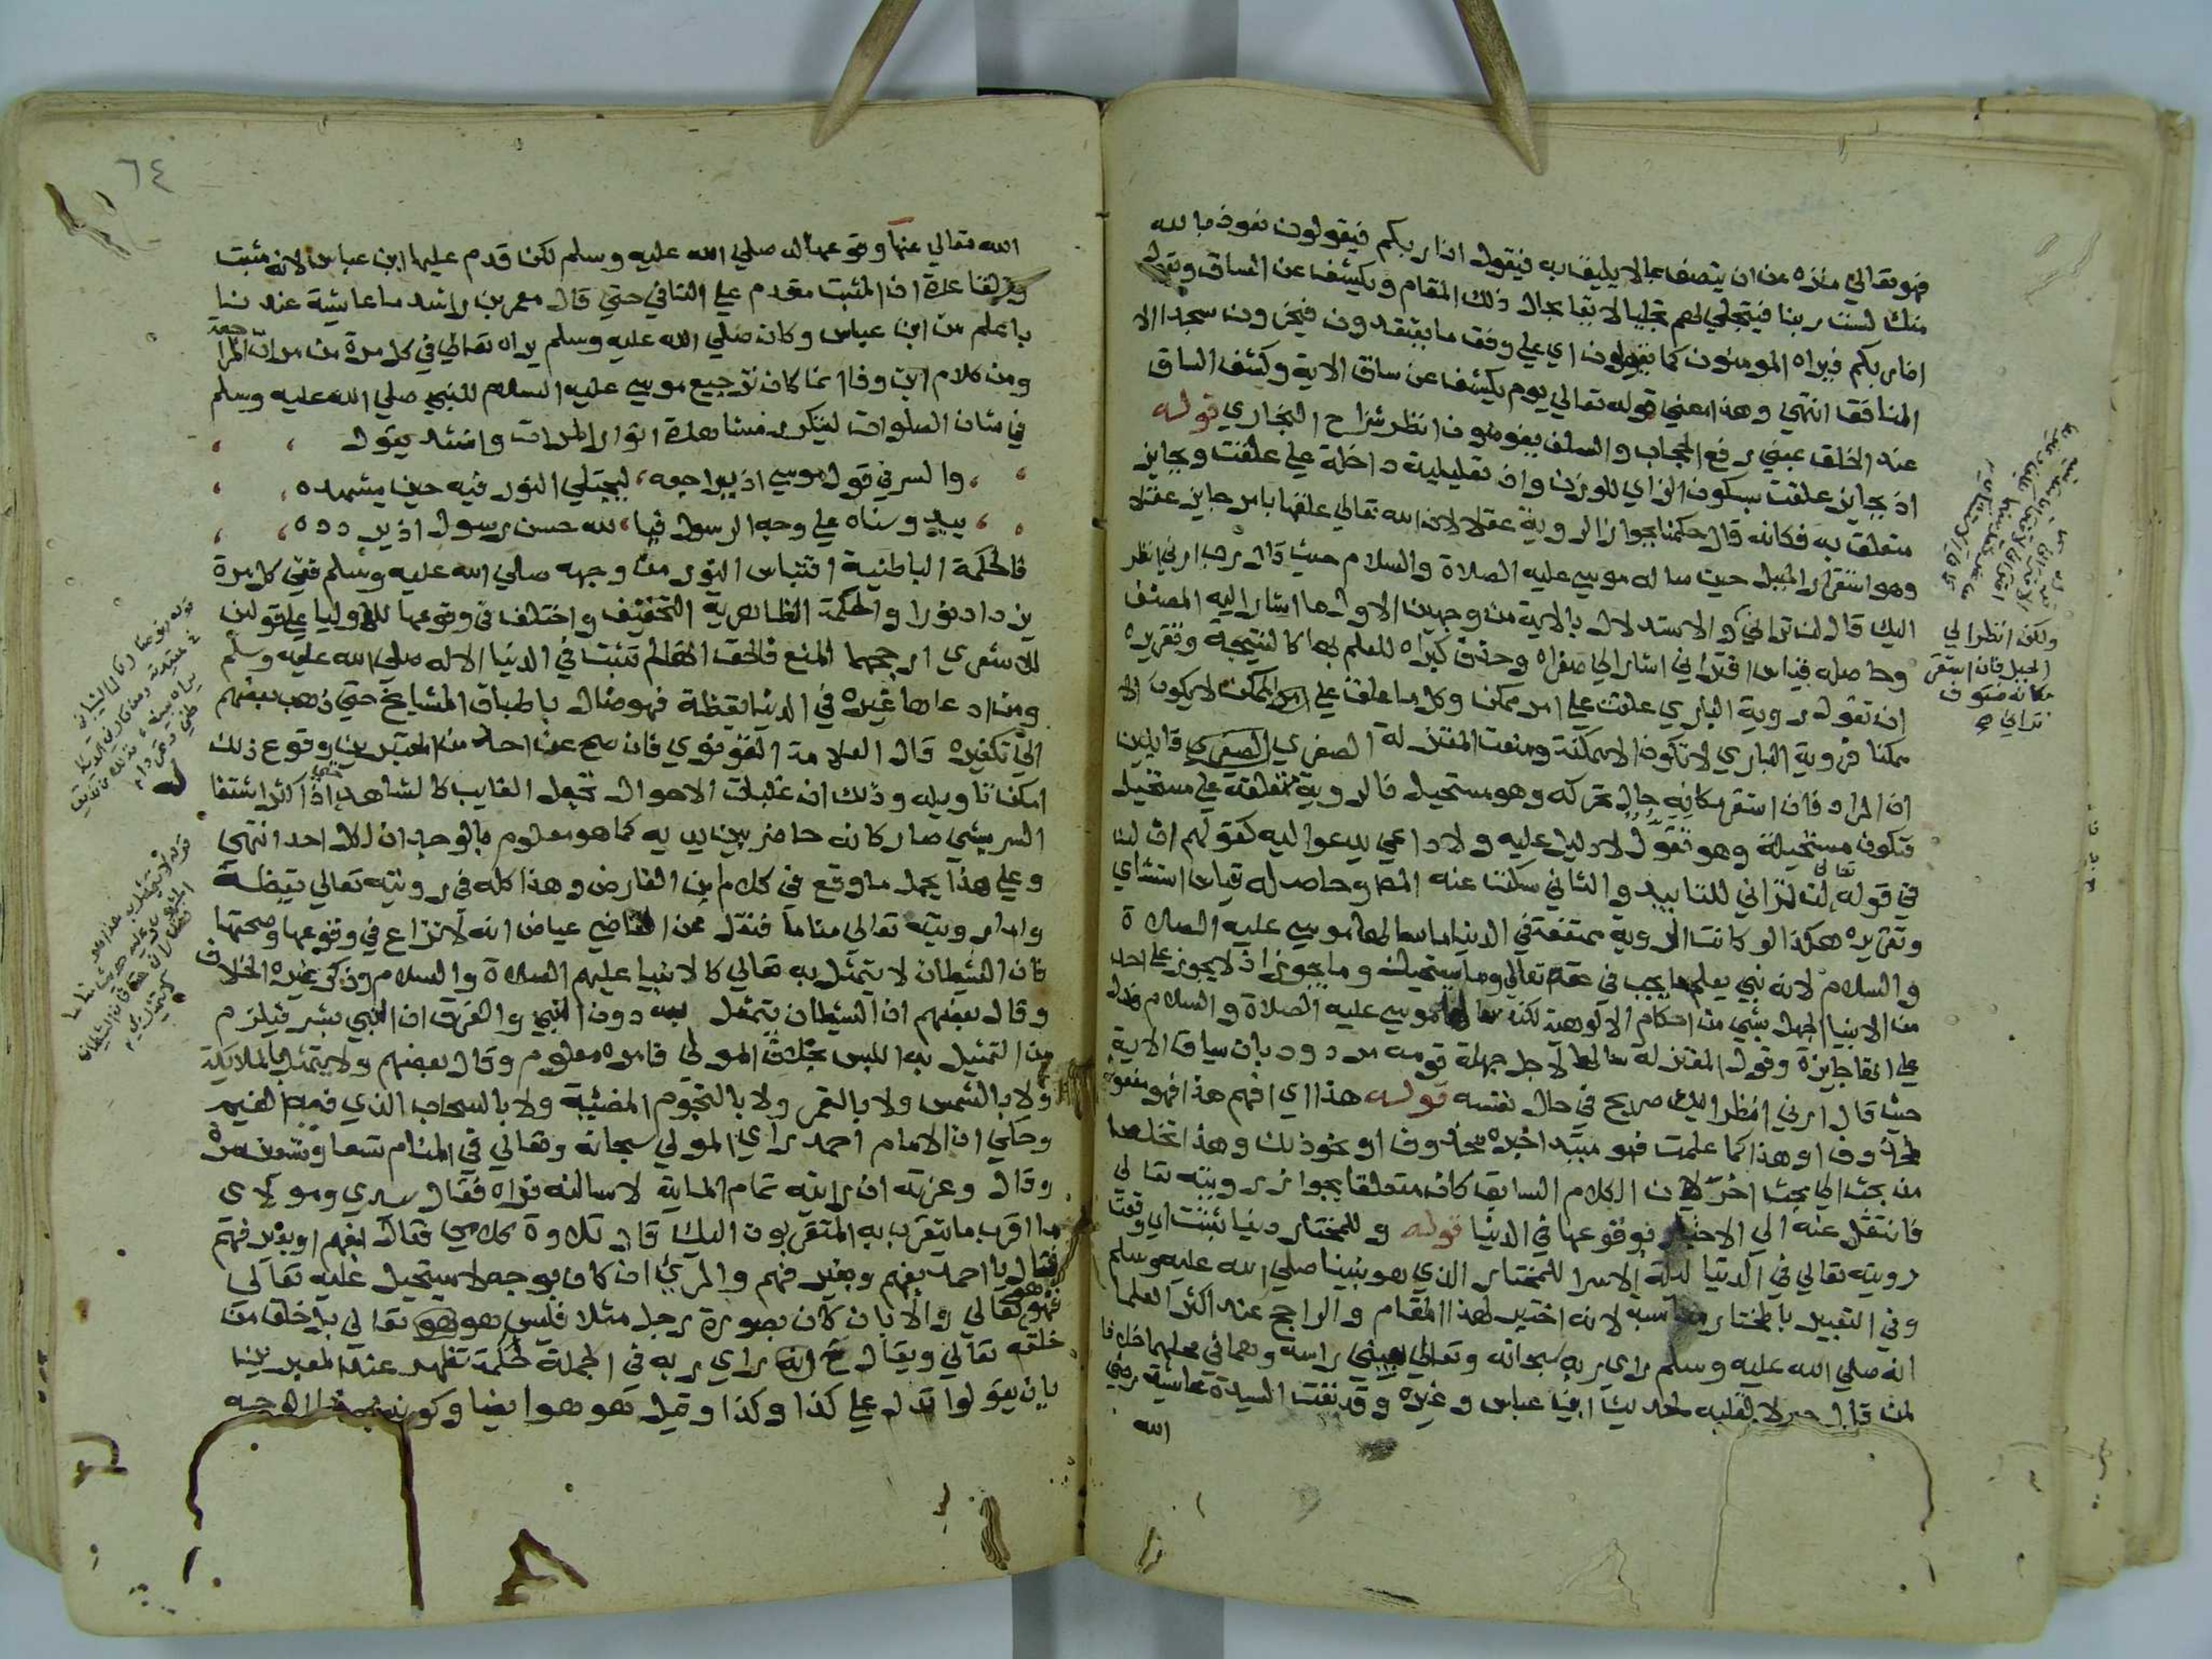 فهو تعالي منزه عن ان يتصف بما لا يليق به فيقول انا ربكم فيقولون نعوذ بالله
منك لست ربنا فيتجلي لهم تجليا لايقا بحال ذلك المقام ويكشف عن الساق ويقول
انا ربكم فيراه المومنون كما اي علي وفق ما يعتقدون فيخرون سجدا الا
المنافق انتهي وهذا معني قوله تعالي يوم يكشف عن ساق الاية وكشف الساق
عند الخلق بمعني رفع الحجاب والسلف يفوضون انظر شراح البخاري قوله
اذ بجايز علقت بسكون الزاي للوزن واذ تعليلية داخلة علي علقت وبجايز
متعلق به فكانه قال حكمنا بجواز الروية عقلا لان الله تعالي علقها بامر جايز عقلا
وهو استقرار الجبل حين ساله موسي عليه الصلاة والسلام حيث قال رب ارني انظر
اليك قال لن تراني والاستدلال بالاية من وجهين الاول ما اشار اليه المصنف
وحاصله قياس اقتراني اشار الي صغراه وحذف كبراه للعلم بها كالنتيجة وتقريره
ان تقول روية الباري علقت علي امر ممكن وكل ما علق علي الممكن لا يكون الا
ممكنا فروية الباري لا تكون الا ممكنة ومنعت المعتزلة الصغري قايلين
ان المراد فان استقر مكانه حال تحركه وهو مستحيل فالروية متعلقة علي مستحيل
فتكون مستحيلة وهو تقول لا دليل عليه ولا داعي يدعوا اليه كقولهم ان لن
في قوله تعالى لن تراني للتابيد والثاني سكت عنه المص وحاصله قياس استثناي
وتقريره هكذا لو كانت الروية ممتنعة في الدنيا ما سالها موسي عليه الصلاة
والسلام لانه نبي يعلم ما يجب في حقه تعالي وما يستحيل وما يجوز اذ لا يجوز علي احد
من الانبيا الجهل بشي من احكام الالوهية لكنه سالها موسي عليه الصلاة والسلام فدل
علي انها جايزة وقول المعتزلة سالها لاجل جهلة قومه مردود بان سياق الاية
حيث قال ارني انظر اليك صريح في حال نفسه قوله هذا اي افهم هذا فهو مفعول
لمحذوف او هذا كما علمت فهو مبتدا خبره محذوف او نحو ذلك وهذا تخلص
من بحث الي بحث اخر لان الكلام السابق كان متعلقا بجواز رويته تعالي
فانتقل عنه الي الاخبار بوقوعها في الدنيا قوله وللمختار دنيا ثبتت اي وقعت
رويته تعالي في الدنيا ليلة الاسرا للمختار الذي هو نبينا صلي الله عليه وسلم
وفي التعبير بالمختار مناسبة لانه اختير لهذا المقام والراجح عند اكثر العلما
انه صلي الله عليه وسلم راي ربه سبحانه وتعالي بعيني راسه وهما في محلهما خلافا
لمن قال حولا لقلبه لحديث ابن عباس وغيره وقد نفت السيدة عايشة رضي
الله
ولكن انظر الي
الجبل فان استقر
مكانه فسوف
تراني صح
٦٤
الله تعالي عنها وقوعها له صلي الله عليه وسلم لكن قدم عليها ابن عباس لانه مثبت
والقاعدة ان المثبت مقدم علي النافي حتي قال معمر بن راشد ما عايشة عندنا
باعلم من ابن عباس وكان صلي الله عليه وسلم يراه تعالي في كل مرة من مرات المراجعة
ومن كلام ابن وفا انما كان ترجيع موسي عليه السلام للنبي صلي الله عليه وسلم
في شان الصلوات ليتكرر مشاهدة انوار المرات وانشد يقول
والسر في قول موسي اذ يراجعه، ليجتلي النور فيه حين يشهده
يبدو سناه علي وجه الرسول فيا، لله حسن رسول اذ يردده
فالحكمة الباطنية اقتباس النور من وجهه صلي الله عليه وسلم ففي كل مرة
يزداد نورا والحكمة الظاهرية التخفيف واختلف في وقوعها للاوليا علي قولين
للاشعري ارجحهما المنع فالحق انها لم تثبت في الدنيا الا له صلي الله عليه وسلم
ومن ادعاها غيره في الدنيا يقظة فهو ضال باطباق المشايخ حتي ذهب بعضهم
الي تكفيره قال العلامة القونوي فان صح عن احد من المعتبرين وقوع ذلك
امكن تاويله وذلك ان غلبات الاحوال تجعل الغايب كالشاهد حتي اذا اكثر اشتغال
السر بشي صار كانه حاضر بين يديه كما هو معلوم بالوجدان لكل احد انتهي
وعلي هذا يحمل ما وقع في كلام ابن الفارض وهذا كله في رويته تعالي يقظة
واما رويته تعالى مناما فنقل عن القاضي عياض انه لا نزاع في وقوعها وصحتها
فان الشيطان لا يتمثل به تعالي كالانبيا عليهم الصلاة والسلام وذكر غيره الخلاف
وقال بعضهم ان الشيطان يتمثل به دون النبي والفرق ان النبي بشر فيلزم
من التمثيل به اللبس بخلاف المولي فامره معلوم وقال بعضهم ولا يتمثل بالملايكة
ولا بالشمس ولا بالقمر ولا بالنجوم المضيئة ولا بالسحاب الذي فيه الغيم
وحكي ان الامام احمد راي المولي سبحانه وتعالي في المنام تسعا وتسعين مرة
وقال وعزته ان رايته تمام الماية لاسالنه فراه فقال سيدي ومولاي
ما اقرب ما يتقرب به المتقربون اليك قال تلاوة كلامي فقال بفهم او بغير فهم
فقال يا احمد بفهم وبغير فهم والمرئي ان كان بوجه لا يستحيل عليه تعالي
فهو هو تعالي والا بان كان بصورة رجل مثلا فليس هو هو تعالي بل خلق من
خلقه تعالي ويقال ح انه راي ربه في الجملة لحكمة تظهر عند المعبرين
بان يقولوا تدل علي كذا وكذا وقيل هو هو ايضا وكونه الوجه